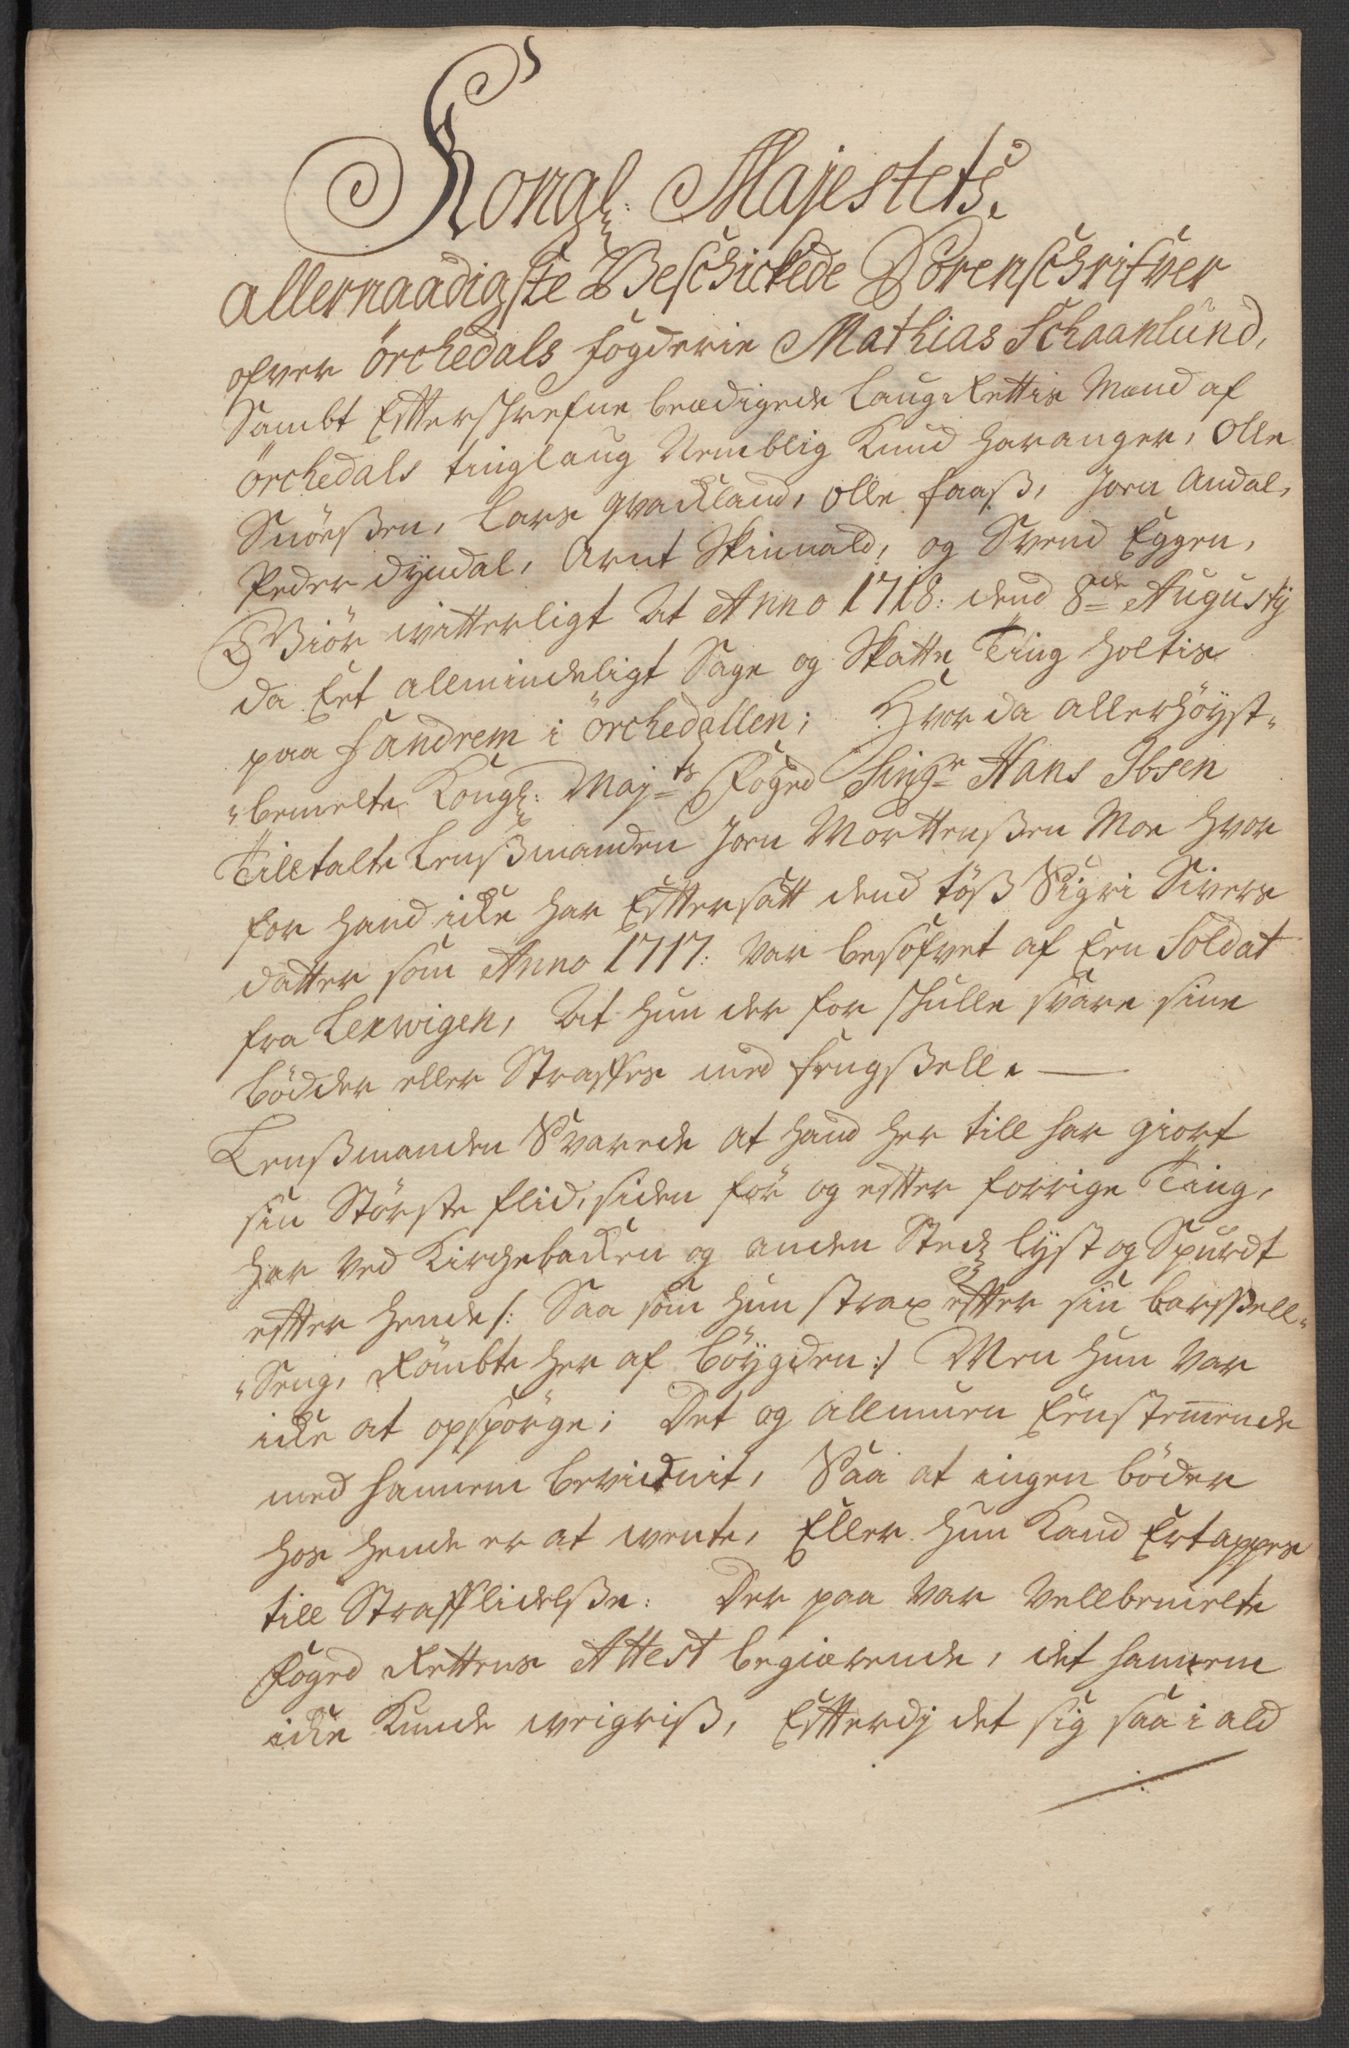 Kongl: Majestets.
allernaadigste Beschickede Sorenschrifver
ofver Örchedals fogderie Mathias Schaanlund,
Sambt Effterschrefne beædigede LaugRettis Mænd af
Örchedals tinglaug Nemblig Knud Haranger, Olle
Snöeßen, Lars Qvackland, Olle Faaß, Joen Andal,
Peder Dyrdal, Arnt Skinnald, og Svend Eggen,
Giör witterligt At Anno 1718: dend 8de Augustij
da Eet allmindeligt Sage og Skatte Ting holtis
paa Fandrem i Örchedallen; Hvor da allerhöyst-
-bemelte Kongl: Mayts Foged Singr Hans Ibsen
Tilltalte Lenßmanden Joen Morttenßen Moe hvor
for hand icke har Efftersatt dend töß Sigri Sivers
datter som Anno 1717: var besofvet af Een Soldat
fra Lexwigen, At hun der for schulle svare sine
bödder eller Straffes med fengßell. —
Lenßmanden Svarede at hand her till har giort
sin Störste flid, siden för og effter forrige Ting,
har ved Kirchebacken og anden Stedz lyst og Spurdt
effter hende /: Saa som hun strax effter sin barßell-
-Seng, Römbte her af böygden :/ Men hun var
icke at opspörge; Det og allmuen Eenstemmende
med hannem bevidnit, Saa at ingen böder
hos hende er at wente, Eller hun Kand Ertappes
till Strafflidelße: Der paa var Vellbemelte
Foged Rettens Attest begiærende, det hannem
icke Kunde weigriß, Effterdj det sig saa i ald